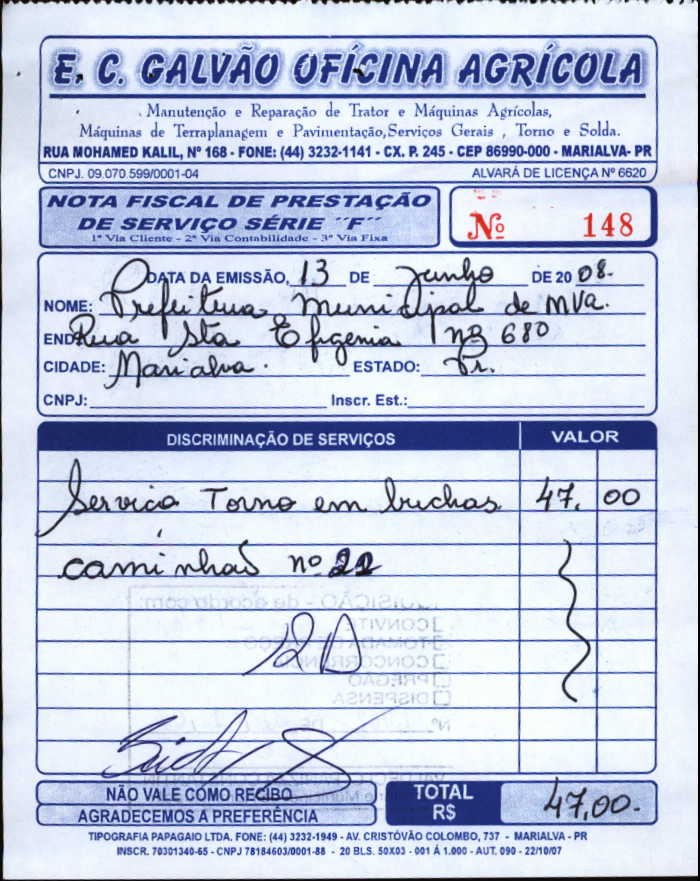 E. C. GALVÃO OFÍCINA AGRÍCOLA
Manutenção e Reparação de Trator e Máquinas Agrícolas,
Máquinas de Terraplanagem e Pavimentação,Serviços Gerais , Torno e Solda.
RUA MOHAMED KALIL, Nº 168 - FONE: (44) 3232-1141 - CX. P. 245 - CEP 86990-000 - MARIALVA- PR
CNPJ. 09.070.599/0001-04 ALVARÁ DE LICENÇA Nº 6620
NOTA FISCAL DE PRESTAÇÃO
DE SERVIÇO SÉRIE ´´F´´
1ª Via Cliente - 2ª Via Contabilidade - 3ª Via Fixa
Nº 148
DATA DA EMISSÃO, 13 DE Junho DE 20 08.
NOME: Prefeitura Municipal de Mva.
END. Rua Sta Efigenia nº 680
CIDADE: Marialva. ESTADO: Pr.
CNPJ: Inscr. Est.:
DISCRIMINAÇÃO DE SERVIÇOS VALOR
Servico Torno em buchas 47. 00
caminhaõ nº 22
QUISIÇÃO - de acordo com:
CONVITE
TOMADA DE PREÇO
CONCORRÊNCIA
PREGÃO
DISPENSA
Nº DE
NÃO VALE COMO RECIBO
AGRADECEMOS A PREFERÊNCIA
TOTAL R$ 47,00.
TIPOGRAFIA PAPAGAIO LTDA. FONE: (44) 3232-1949 - AV. CRISTÓVÃO COLOMBO, 737 - MARIALVA - PR
INSCR. 70301340-65 - CNPJ 78184603/0001-88 - 20 BLS. 50X03 - 001 Á 1.000 - AUT. 090 - 22/10/07